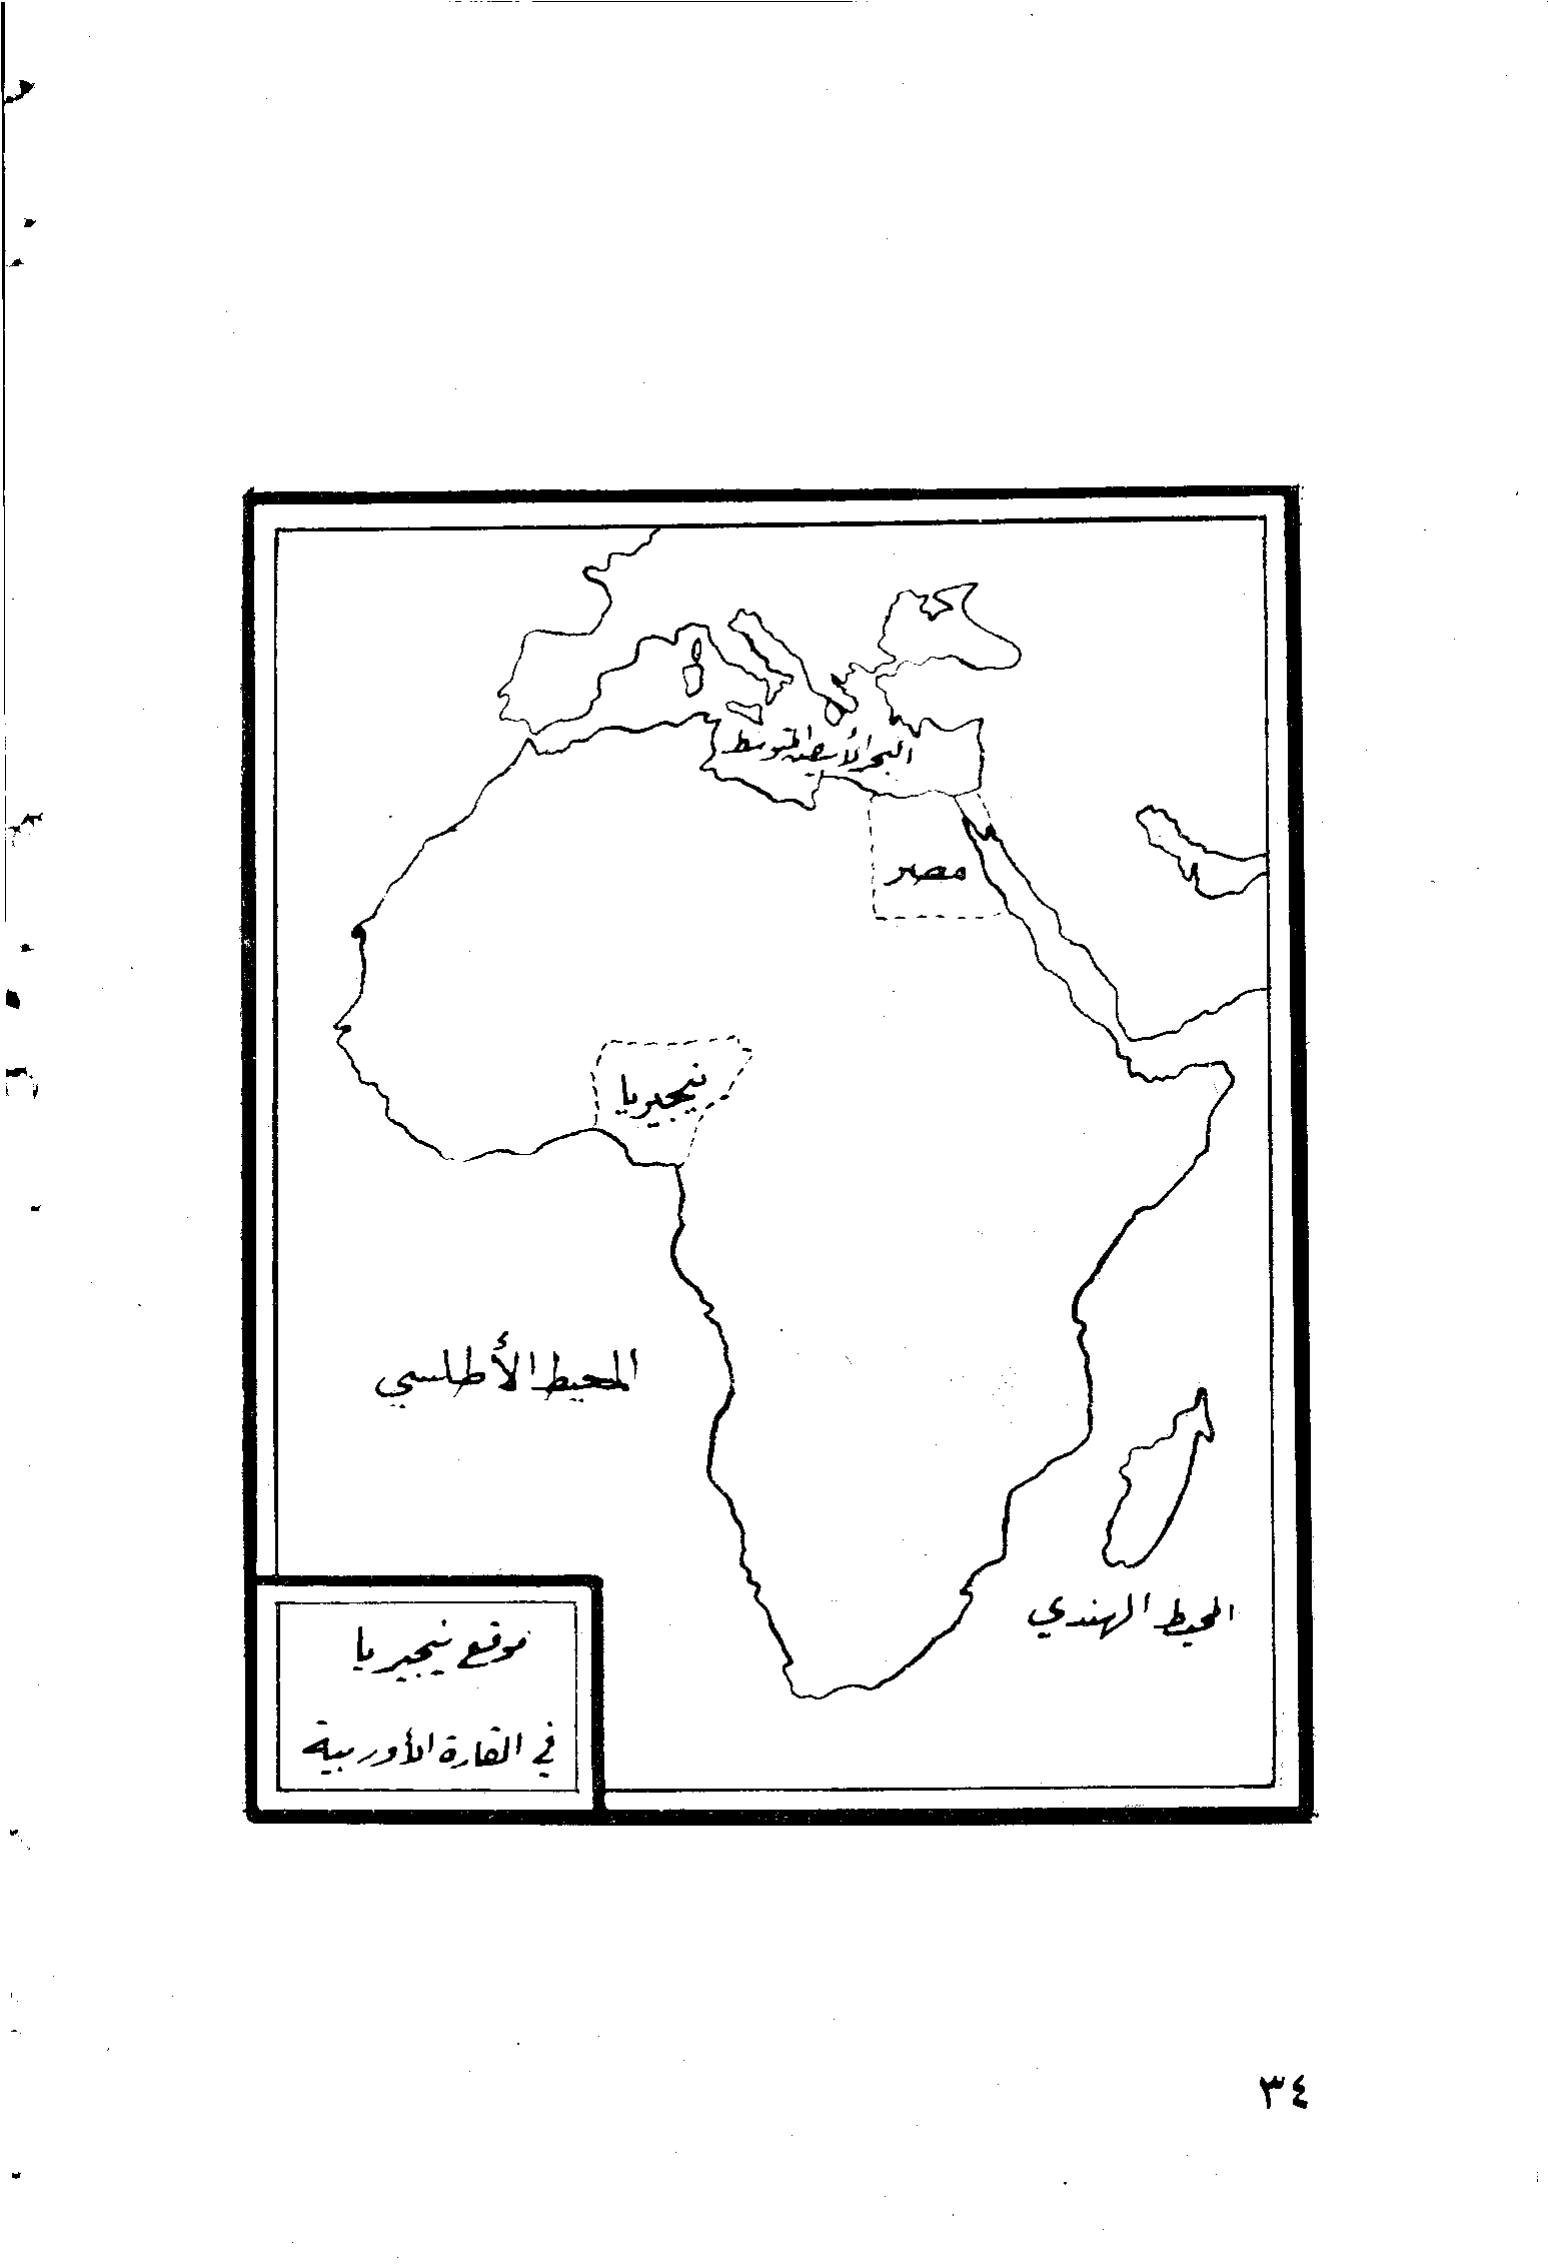 البحر الأبيض المتوسط
مصر
نيجيريا
المحيط الأطلسي
المحيط الهندي
موقع نيجيريا
في القارة الأوربية
٣٤